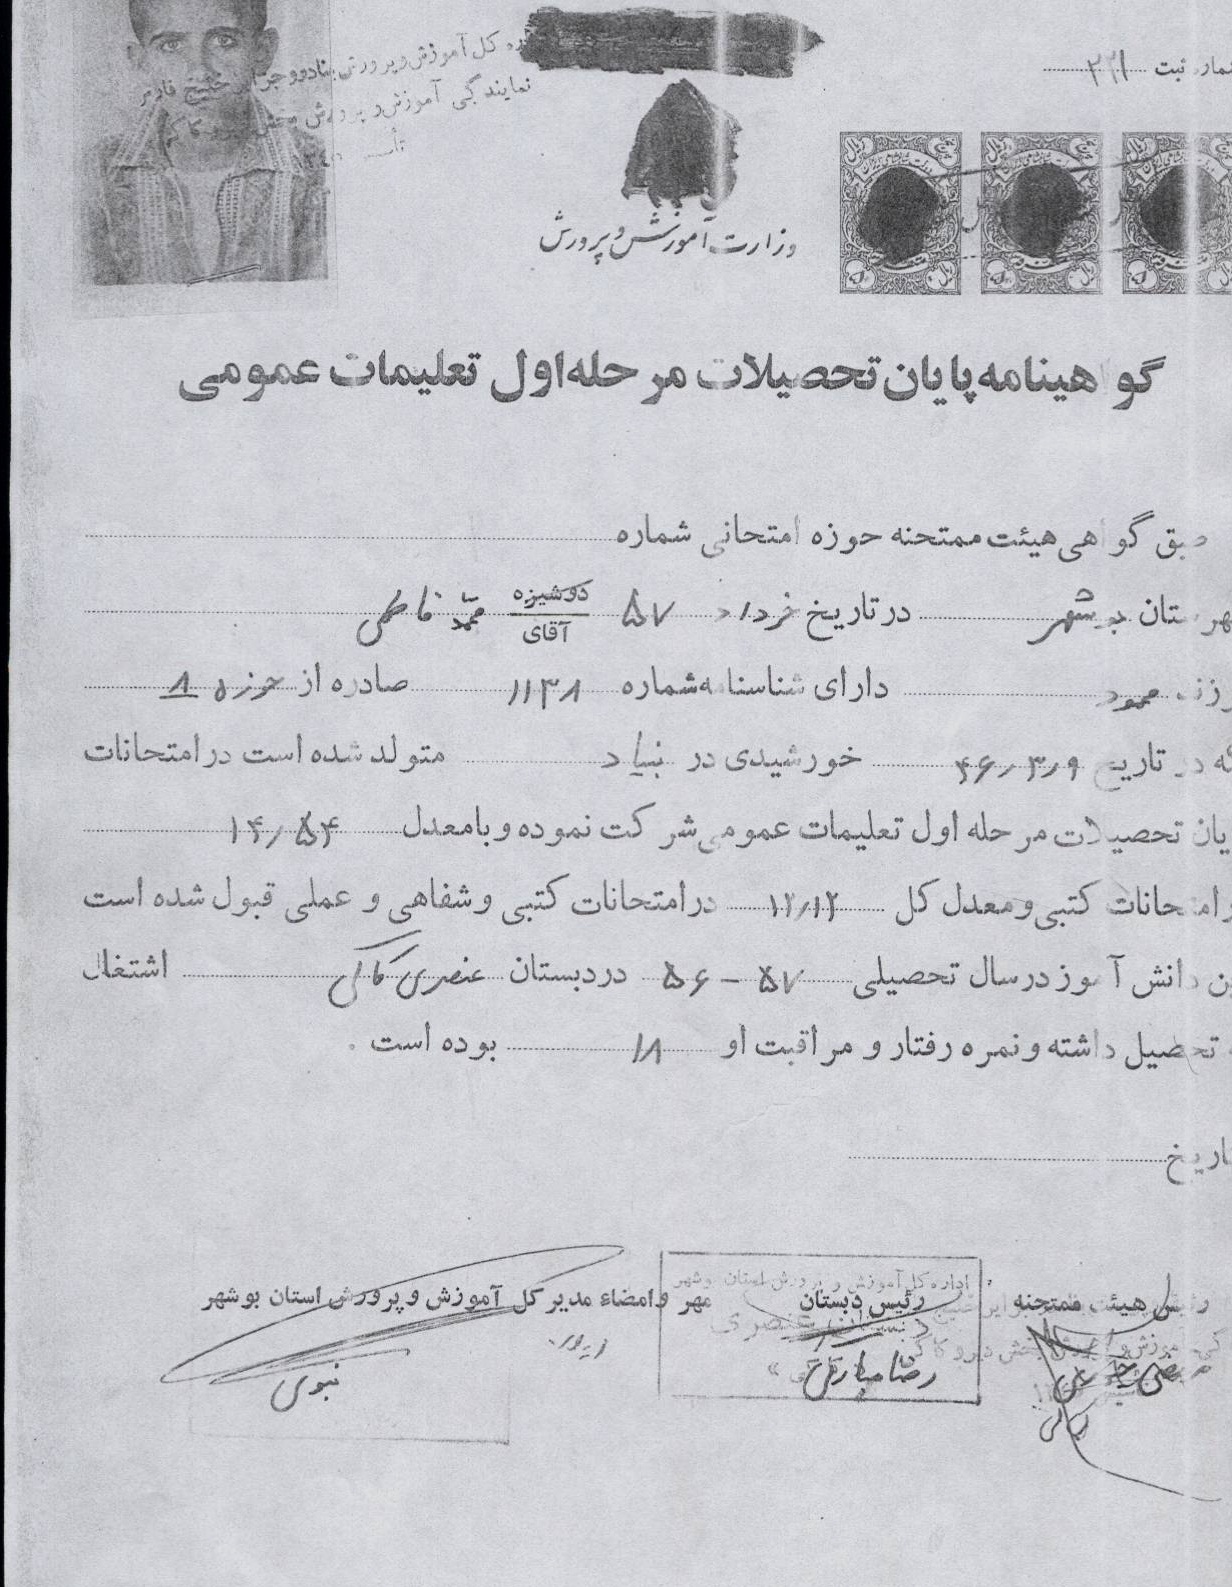 شماره ثبت ۲۲۱
کل آموزش و پرورش بنادر و جزایر خلیج فارس
نمایندگی آموزش و پرورش بخش
وزارت آموزش و پرورش
گواهینامه پایان تحصیلات مرحله اول تعلیمات عمومی
طبق گواهی هیئت ممتحنه حوزه امتحانی شماره
هرستان بوشهر در تاریخ خرداد ۵۷ دوشیزه آقای محمد فاطمی
رزند محمود دارای شناسنامه شماره ۱۱۳۸ صادره از حوزه ۸
که در تاریخ ۴۶/۳/۹ خورشیدی در بنیاد متولد شده است در امتحانات
ایان تحصیلات مرحله اول تعلیمات عمومی شرکت نموده و با معدل ۱۴/۵۴
ر امتحانات کتبی و معدل کل ۱۲/۱۲ در امتحانات کتبی و شفاهی و عملی قبول شده است
ین دانش آموز در سال تحصیلی ۵۷ - ۵۶ در دبستان عنصری کاکی اشتغال
ه تحصیل داشته و نمره رفتار و مراقبت او ۱۸ بوده است .
تاریخ
رئیس هیئت ممتحنه رئیس دبستان مهر و امضاء مدیر کل آموزش و پرورش استان بوشهر
اداره کل آموزش و پرورش استان بوشهر
دبستان عنصری
نبوی